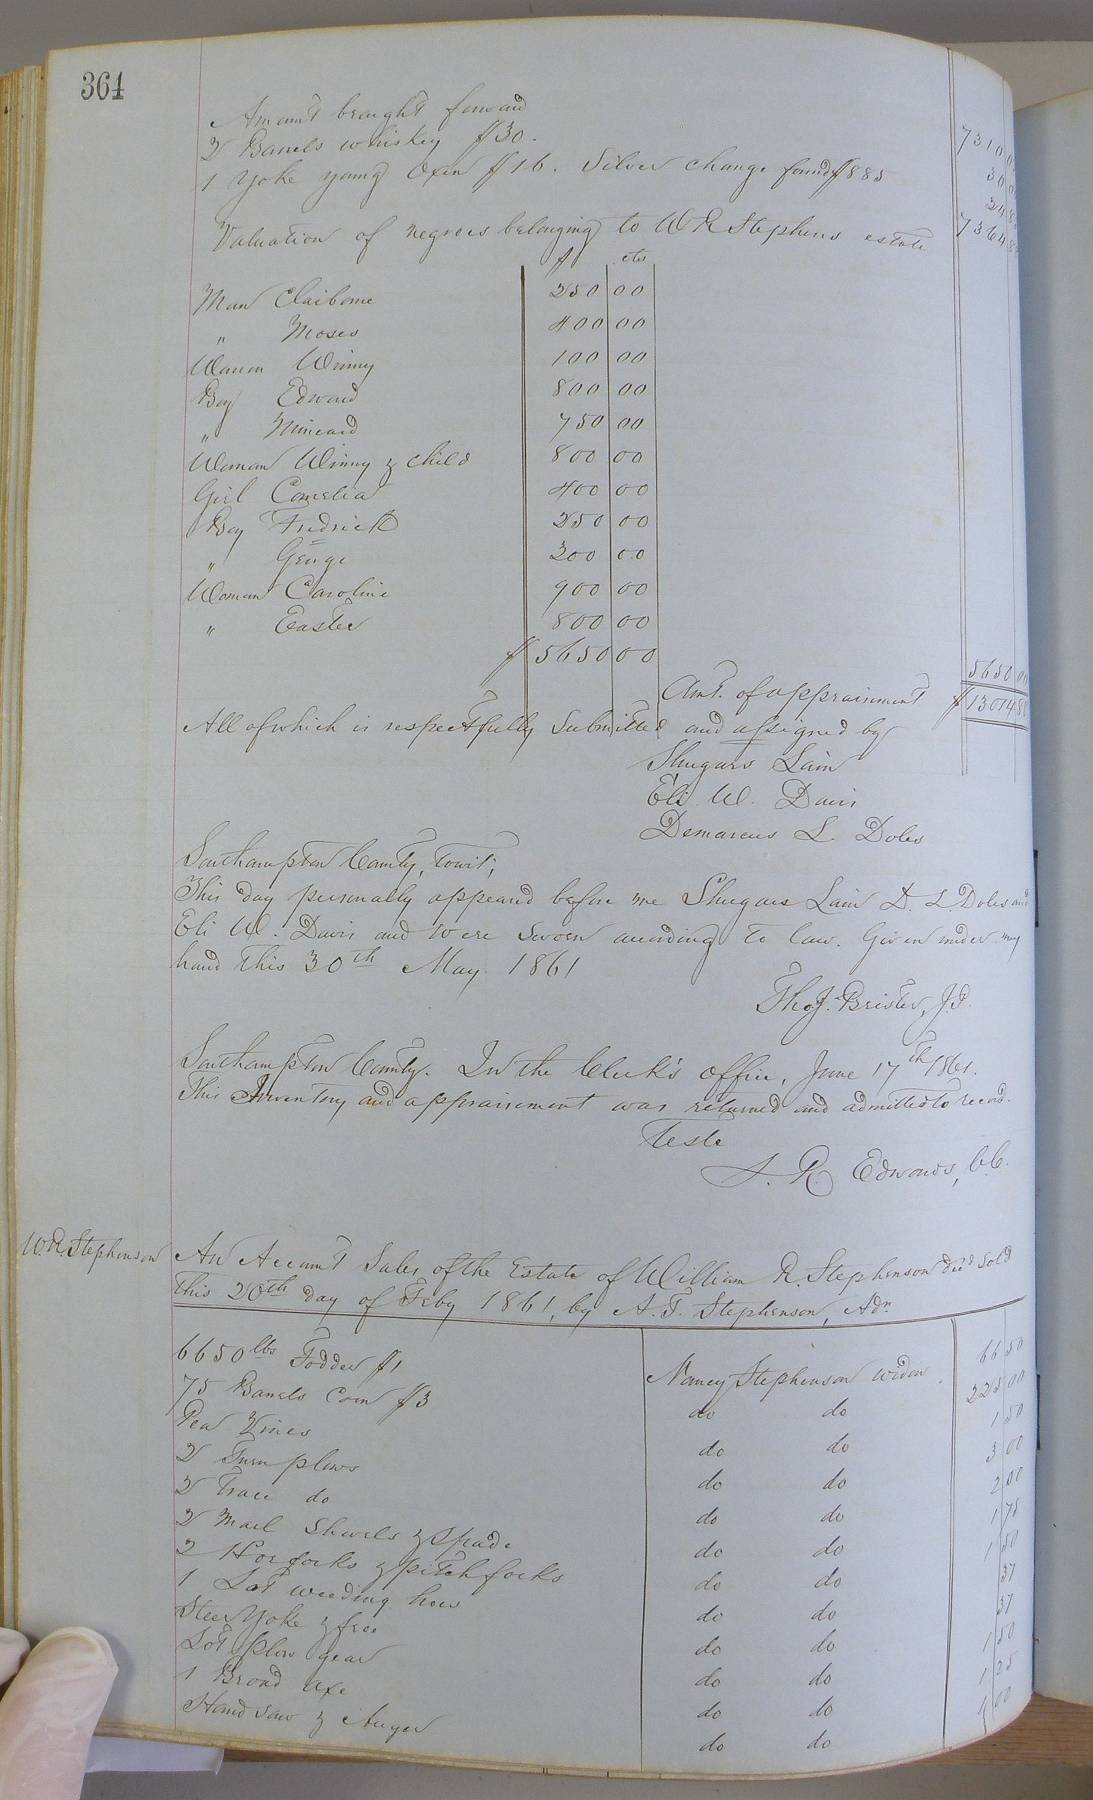 364
Amount brought forward 7310 0
2 Barrels whiskey $30. 30 0
1 Yoke young Oxen $16. Silver change found $885 24 8
7364 8
Valuation of negroes belonging to W R Stephens estate
$ cts
Man Claiborne 250 00
" Moses 400 00
Woman Winny 100 00
Boy Edward 800 00
" 750 00
Woman Winny & child 800 00
Girl Cornelia 400 00
Boy Fredrick 250 00
" George 200 00
Woman Caroline 900 00
" Easter 800 00
$ 5650 00 5650 00
Amt. of appraisment $13014 8
All of which is respectfully Submitted and assigned by
Shugars Lain
Eli W. Davis
Demarcus L. Doles
Southampton County, towit;
This day personally appeard before me Shugars Lain D. L. Doles and
Eli W. Davis and were Sworn according to law. Given under my
hand this 30th May 1861
Thos J. Brister, J.P.
Southampton County. In the Clerk's office, June 17th 1861.
This Inventory and appraisement was returned and admitted to record.
Teste
L. R. Edwards, C.C.
W. R. Stephenson
An Account Sales of the Estate of William R. Stephenson decd Sold
this 20th day of Feby 1861, by A. T. Stephenson, Adr.
6650 lbs Fodder $1 Nancy Stephenson widow. 66 50
75 Barrels Corn $3 do do 225 00
Pea Vines do do 1 50
2 Turn plows do do 3 00
2 Trace do do do 2 50
2 Shovels & Spade do do 1 75
2 Hoe forks & pitch forks do do 1 50
1 Lot weeding hoes do do 37
Steer Yoke & froe do do 37
Lot plow gear do do 1 50
1 Broad axe do do 1 25
Hand Saw & Auger do do 00